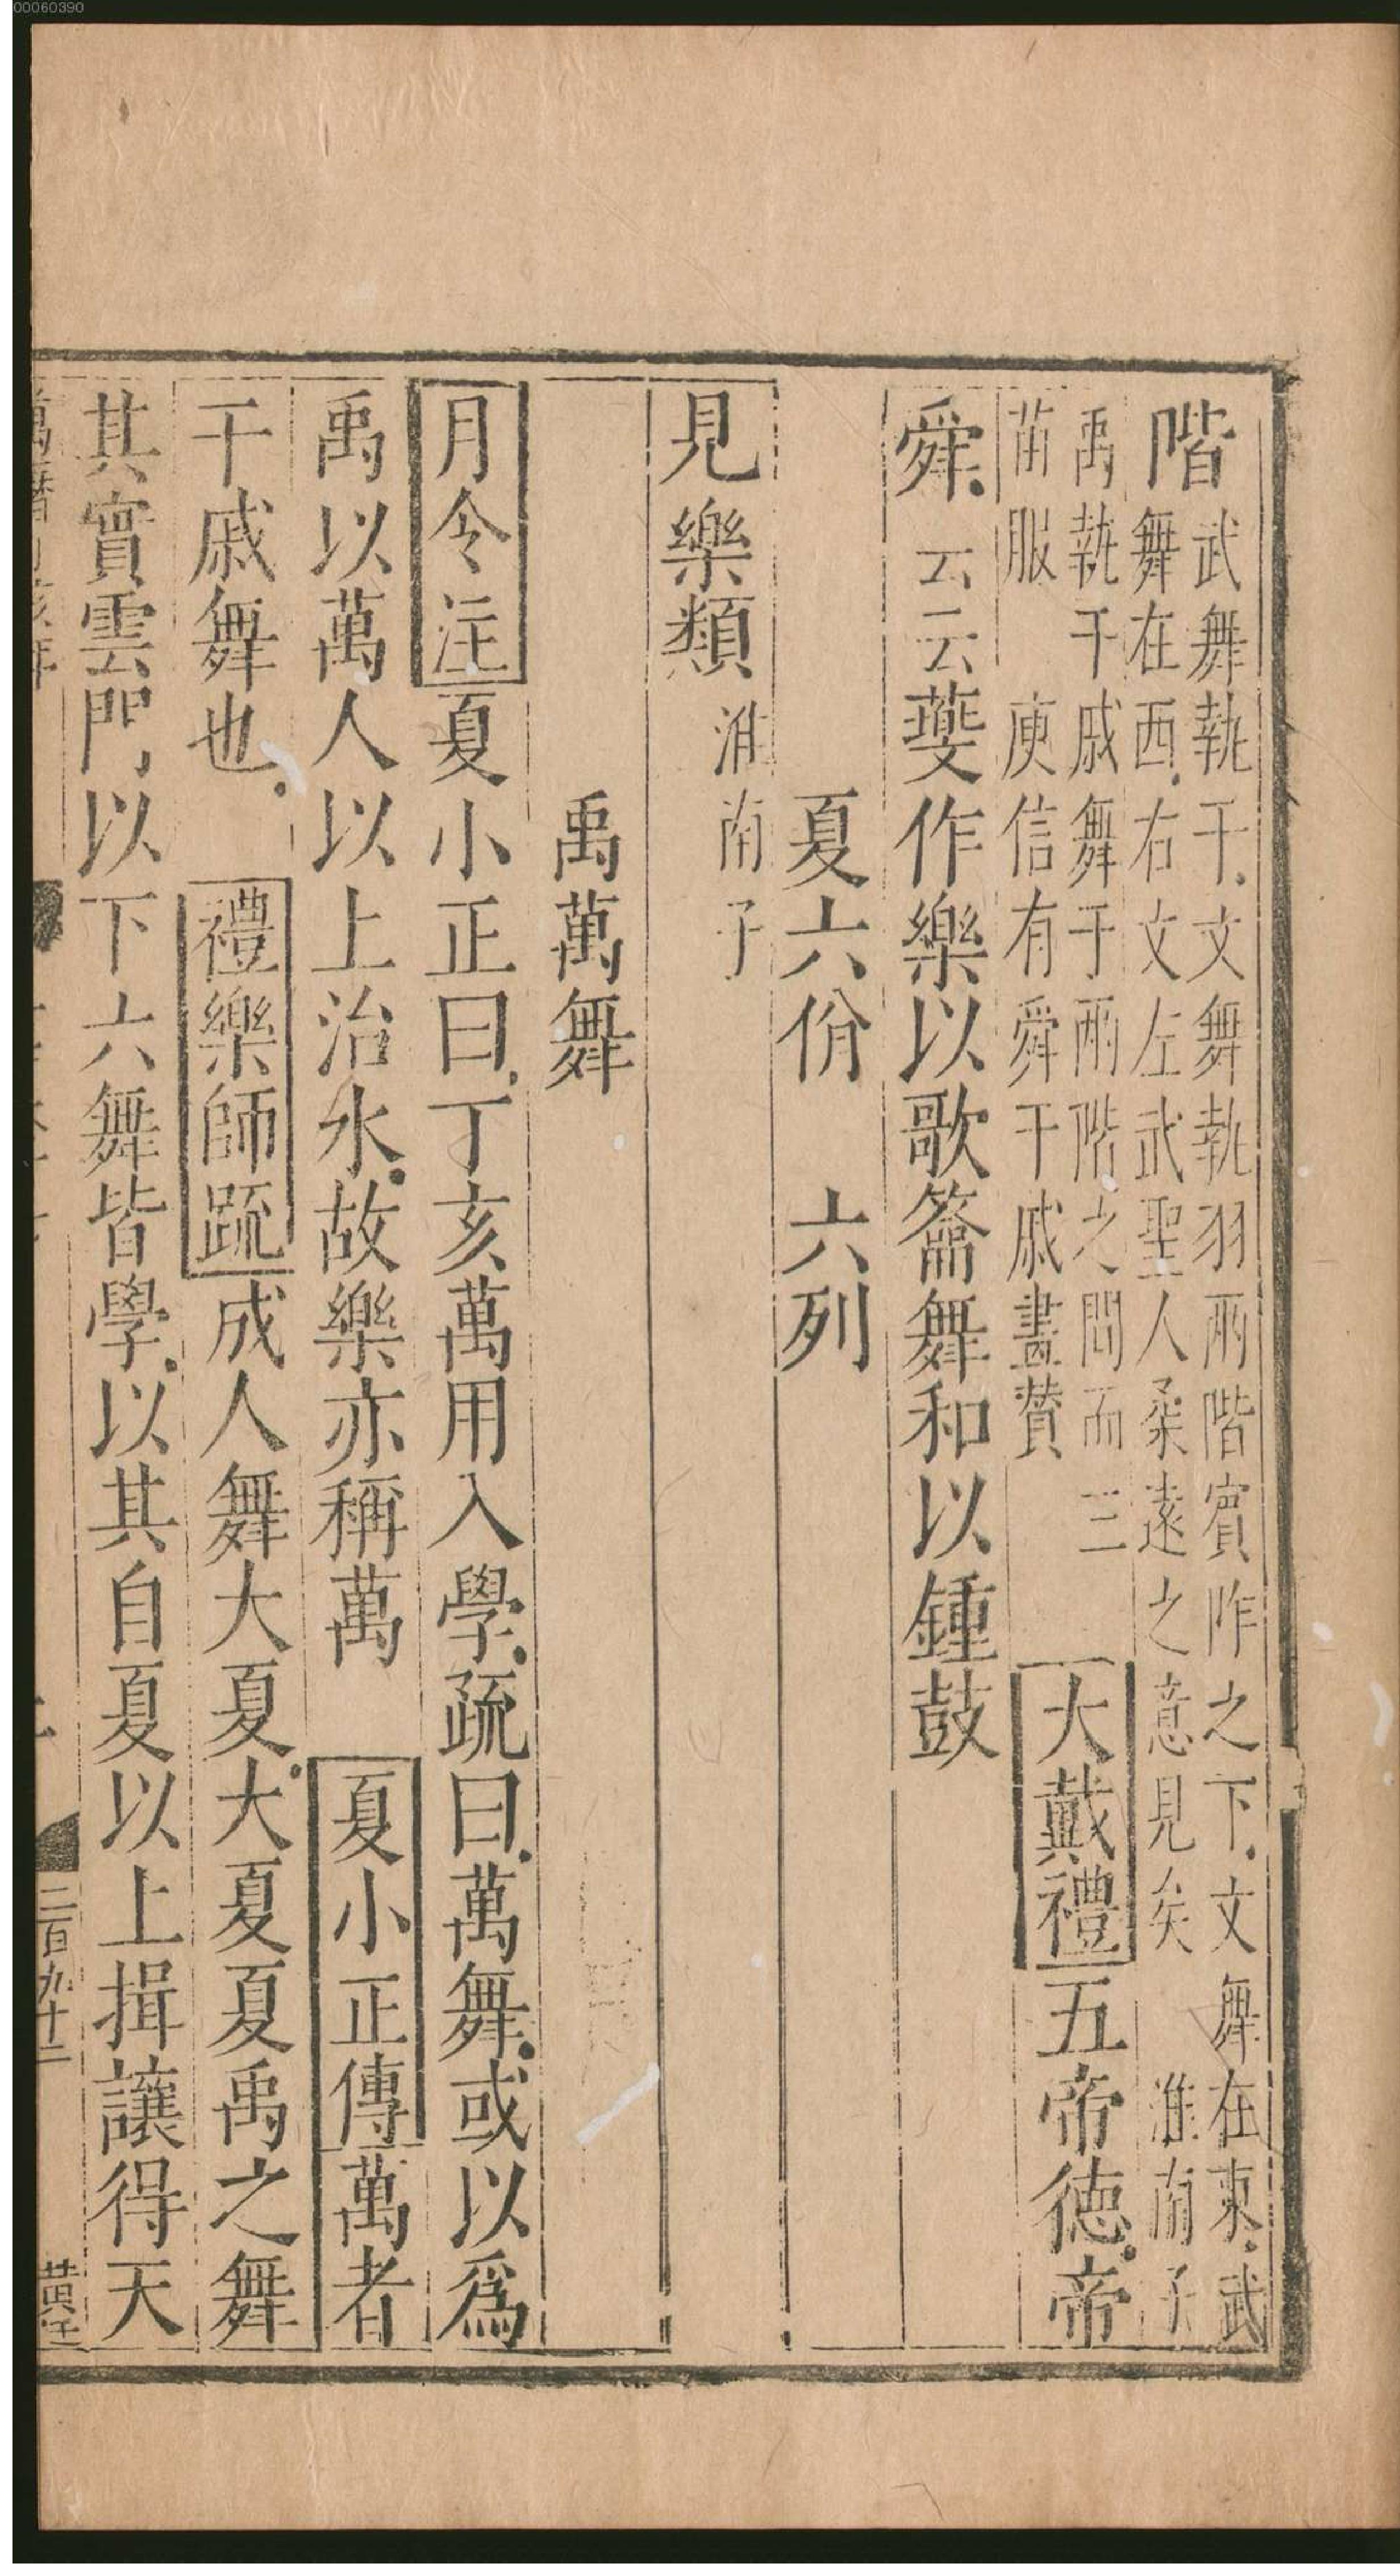 00060390
階武舞執干文舞執羽兩階賓阼之下文舞在東武
舞在西右文左武聖人柔遠之意見矣 淮南子
禹執干戚舞于兩階之間而三
苗服 庾信有舜干戚畫贊 大戴禮五帝德帝
舜云云夔作樂以歌籥舞和以鍾鼓
夏六佾 六列
見樂類 淮南子
禹萬舞
月令注夏小正曰丁亥萬用入學疏曰萬舞或以爲
禹以萬人以上治水故樂亦稱萬 夏小正傳萬者
干戚舞也 禮樂師䟽成人舞大夏大夏夏禹之舞
其實雲門以下六舞皆學以其自夏以上揖讓得天
二百九十二